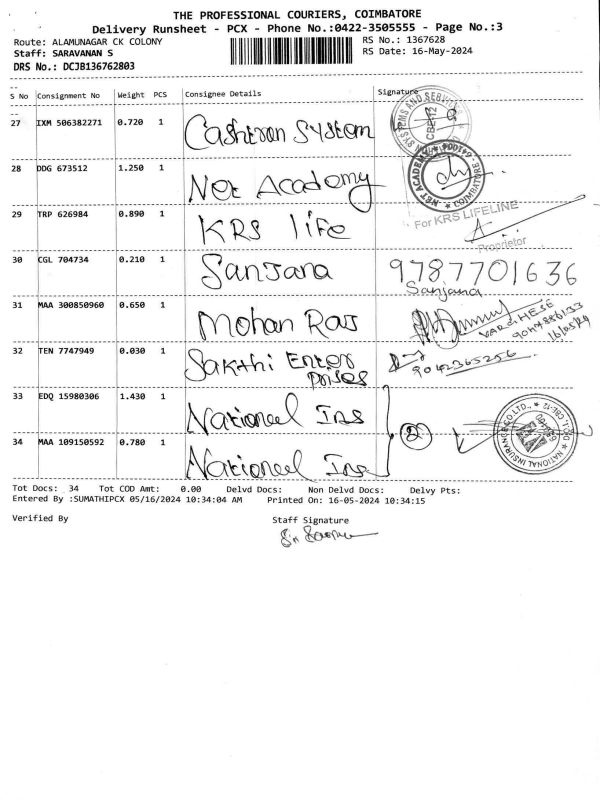 THE PROFESSIONAL COURIERS, COIMBATORE
Delivery Runsheet - PCX - Phone No.:0422-3505555 - Page No.:3
Route: ALAMUNAGAR CK COLONY
RS No.: 1367628
Staff: SARAVANAN S
RS Date: 16-May-2024
DRS No.: DCJB136762803
S No Consignment No Weight PCS Consignee Details Signature
27 IXM 506382271 0.720 1 Cashtron System
28 DDG 673512 1.250 1 Net Academy
NET ACADEMY COIMBATORE
29 TRP 626984 0.890 1 KRS life
For KRS LIFELINE
Proprietor
30 CGL 704734 0.210 1 Sanjana 9787701636
Sanjana
31 MAA 300850960 0.650 1 Mohan Raj
9047886133
16/05/24
32 TEN 7747949 0.030 1 Sakthi Enter
prises
9042365256
33 EDQ 15980306 1.430 1 National Ins
2
34 MAA 109150592 0.780 1 National Ins
NATIONAL INSURANCE CO.LTD.,
Tot Docs: 34 Tot COD Amt: 0.00 Delvd Docs: Non Delvd Docs: Delvy Pts:
Entered By :SUMATHIPCX 05/16/2024 10:34:04 AM Printed On: 16-05-2024 10:34:15
Verified By Staff Signature